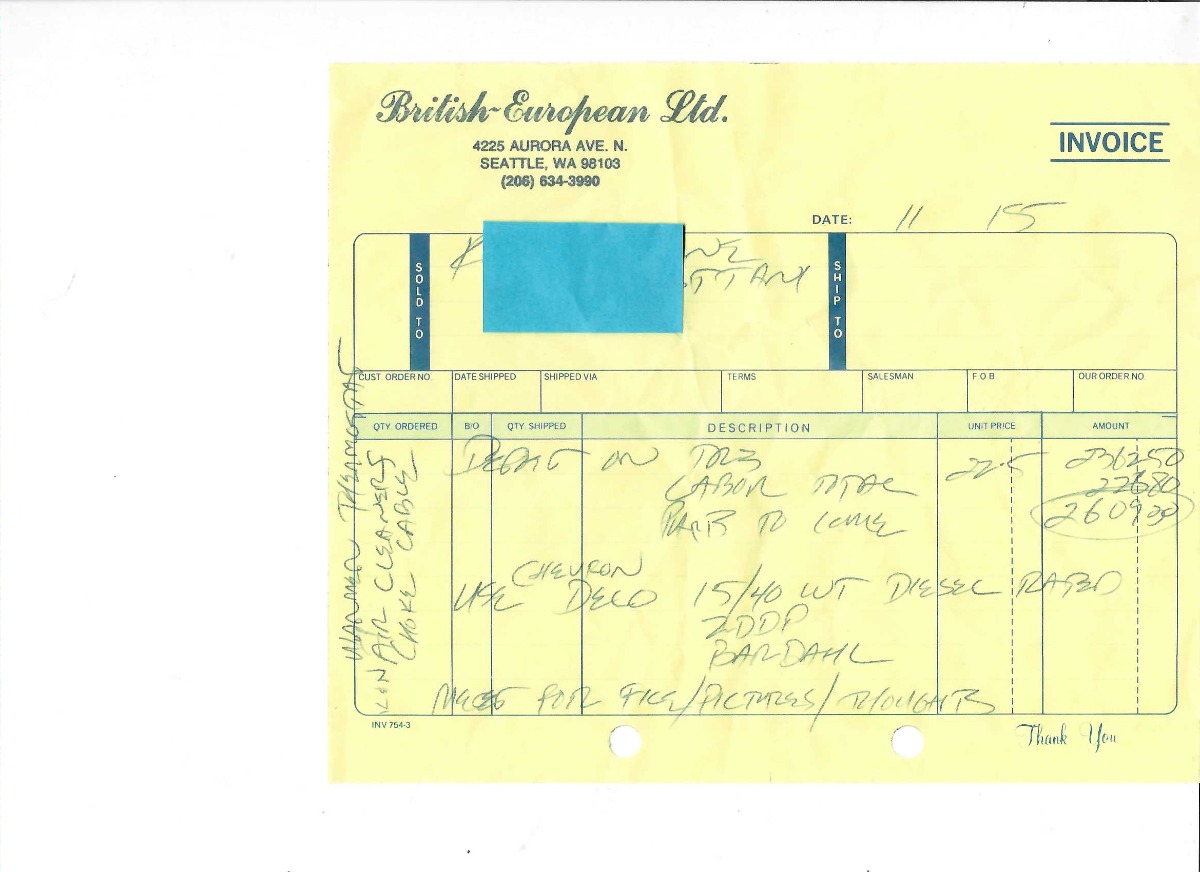 British-European Ltd.
4225 AURORA AVE. N.
SEATTLE, WA 98103
(206) 634-3990
INVOICE
DATE: 11 15
SOLD TO
SHIP TO
CUST ORDER NO. DATE SHIPPED SHIPPED VIA TERMS SALESMAN F.O.B. OUR ORDER NO
QTY. ORDERED B/O QTY. SHIPPED DESCRIPTION UNIT PRICE AMOUNT
ON TR3 22.5 236250
LABOR TOTAL 22680
TO COME 260900
CHEVRON
USE DELO 15/40 WT DIESEL RATED
ZDDP
BARDAHL
FOR FILE/PICTURES/THOUGHTS
WARMER THERMOSTAT
K&N AIR CLEANERS
CHOKE CABLE
INV 754-3
Thank You